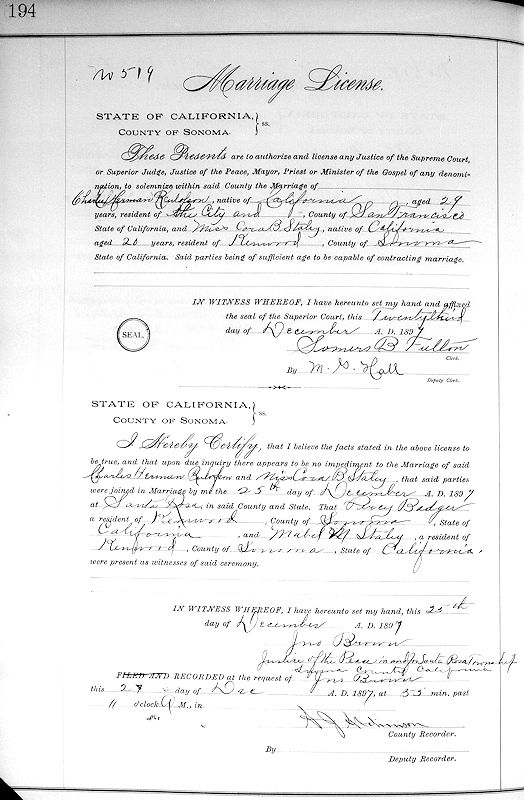 194
No 519
Marriage License.
STATE OF CALIFORNIA,
COUNTY OF SONOMA
ss.
These Presents are to authorize and license any Justice of the Supreme Court,
or Superior Judge, Justice of the Peace, Mayor, Priest or Minister of the Gospel of any denomi-
nation, to solemnize within said County the Marriage of
Charles Herman, native of California, aged 29
years, resident of the City and, County of San Francisco
State of California, and Miss Cora B. Staley, native of California
aged 20 years, resident of Kenwood, County of Sonoma
State of California. Said parties being of sufficient age to be capable of contracting marriage.
IN WITNESS WHEREOF, I have hereunto set my hand and affixed
the seal of the Superior Court, this Twentythird
day of December A. D. 1897
SEAL.
Somers B Fulton
Clerk.
By M. G. Hall
Deputy Clerk.
STATE OF CALIFORNIA,
COUNTY OF SONOMA
ss.
I Hereby Certify, that I believe the facts stated in the above license to
be true, and that upon due inquiry there appears to be no impediment to the Marriage of said
Charles Herman and Miss Cora B Staley, that said parties
were joined in Marriage by me the 25th day of December A. D. 1897
at Santa Rosa, in said County and State. That Percy Badger
a resident of Kenwood, County of Sonoma, State of
California, and Mabel M Staley, a resident of
Kenwood, County of Sonoma, State of California,
were present as witnesses of said ceremony.
IN WITNESS WHEREOF, I have hereunto set my hand, this 25th
day of December A. D. 1897
Jno Brown
Justice of the Peace in and for Santa Rosa Township
Sonoma County California
FILED AND RECORDED at the request of Jno Brown
this 28 day of Dec A. D. 1897, at 55 min. past
11 o'clock A M., in
County Recorder.
By
Deputy Recorder.